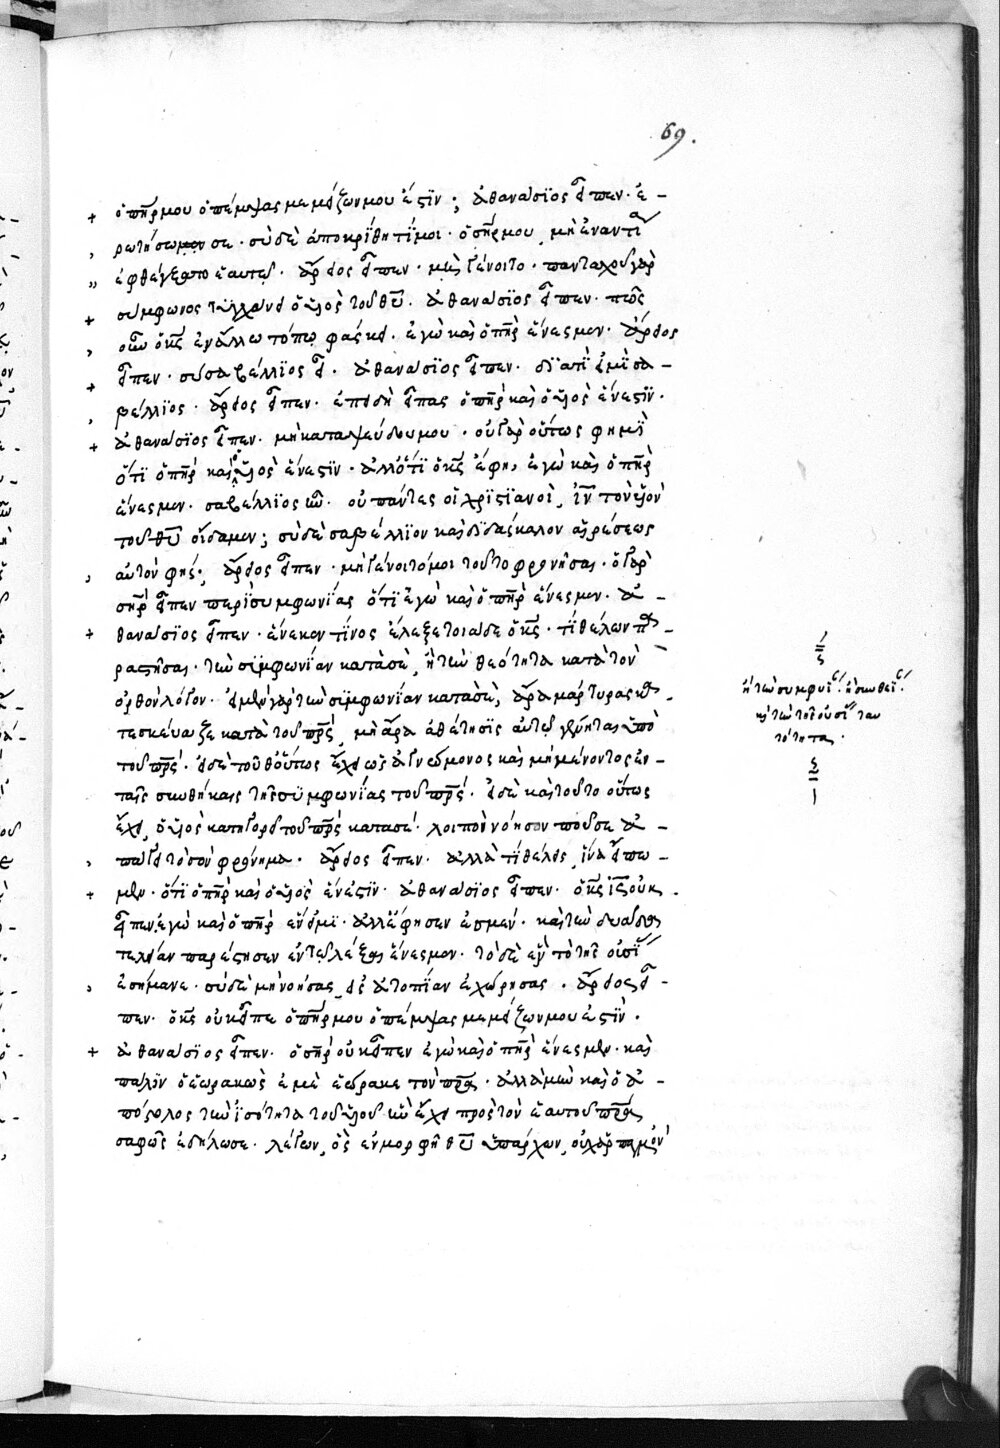 69.
ὁ πῆρ μου ὁ πέμψας με μείζων μου ἐστίν; ἀθανάσιος εἶπεν· ἐ-
ρωτήσωμεν σε· σὺ δὲ ἀποκρίθητί μοι· ὁ σῆρ μου, μὴ ἐναντία
ἐφθέγξατο ἑαυτῷ· ἄρειος εἶπεν· μὴ γένοιτο· πανταχοῦ γὰρ
σύμφωνος τυγχάνει ὁ υἱὸς τοῦ θῦ. ἀθανάσιος εἶπεν· πῶς
οὖν ὁ κς ἐν ἄλλω τόπω φάσκει· ἐγὼ καὶ ὁ πηρ ἕν ἐσμεν· ἄρειος
εἶπεν· σὺ σαβέλλιος εἶ. ἀθανάσιος εἶπεν· διατί εἰμὶ σα-
βέλλιος· ἄρειος εἶπεν· ἐπειδὴ εἶπας ὁ πηρ καὶ ὁ υἱὸς ἕν ἐστιν·
ἀθανάσιος εἶπεν· μὴ καταψεύδου μου· οὐ γὰρ οὕτως φημὶ
ὅτι ὁ πηρ καὶ ὁ υἱὸς ἕν ἐστιν· ἀλλ' ὅτι ὁ κς ἔφη, ἐγὼ καὶ ὁ πηρ
ἕν ἐσμεν· σαβέλλιος ὢν· οὐ πάντες οἱ χριστιανοὶ, ιν τὸν υἱὸν
τοῦ θῦ οἴδαμεν; σὺ δὲ σαβέλλιον καὶ διδάσκαλον αἱρέσεως
αὐτὸν φής· ἄρειος εἶπεν· μὴ γένοιτό μοι τοῦτο φρονῆσαι· ὁ γὰρ
σηρ εἶπεν περὶ συμφωνίας ὅτι ἐγὼ καὶ ὁ πηρ ἕν ἐσμεν· ἀ-
θανάσιος εἶπεν· ἕνεκεν τίνος ἔλεξε τοιάδε ὁ κς· τί θέλων πα-
ραστῆσαι· τὴν συμφωνίαν κατὰ σὲ, ἢ τὴν θεότητα κατὰ τὸν
ὀρθὸν λόγον· εἰ μὲν γὰρ τὴν συμφωνίαν κατὰ σὲ, ἄρα μάρτυρας
τεσκεύαζε κατὰ τοῦ πρς, μὴ ἄρα ἀθέτησις αὐτῷ γένηται ὑπὸ
τοῦ πρς· εἰ δὲ τοῦθ' οὕτως ἔχει ὡς ἀγνώμονος καὶ μὴ μένοντος ἐν
ταῖς συνθήκαις τῆς συμφωνίας τοῦ πρς· εἰ δὲ καὶ τοῦτο οὕτως
ἔχει, ὁ υἱὸς κατηγορεῖ τοῦ πρς κατὰ σέ· λοιπὸν νόησον ποῦ σε ἀ-
πάγει τὸ σὸν φρόνημα. ἄρειος εἶπεν· ἀλλὰ τί θέλεις, ἵνα εἴπω-
μεν· ὅτι ὁ πηρ καὶ ὁ υἱὸς ἕν ἐστιν· ἀθανάσιος εἶπεν· ὁ κς ις οὐκ
εἶπεν, ἐγὼ καὶ ὁ πηρ ἕν εἰμι· ἀλλ' ἔφησεν ἐσμέν· καὶ τὴν δυάδα
τελείαν παρέστησεν ἐν τῷ λέξαι ἕν ἐσμεν· τὸ δὲ ἓν τὸ τῆς οὐσίας
ἐσήμανε· σὺ δὲ μὴ νοήσας, εἰς ἀτοπίαν ἐχώρησας. ἄρειος εἶ-
πεν· ὁ κς οὐκ εἶπε ὁ πηρ μου ὁ πέμψας με μείζων μου ἐστίν.
ἀθανάσιος εἶπεν· ὁ σηρ οὐκ εἶπεν ἐγὼ καὶ ὁ πηρ ἕν ἐσμεν· καὶ
πάλιν ὁ ἑωρακὼς ἐμὲ ἑώρακε τὸν πρα· ἀλλὰ μὴν καὶ ὁ ἀ-
πόστολος τὴν ἰσότητα τοῦ υἱοῦ ἣν ἔχει πρὸς τὸν ἑαυτοῦ πρα
σαφῶς ἐδήλωσε· λέγων, ὃς ἐν μορφῇ θῦ ὑπάρχων, οὐχ ἁρπαγμὸν
τὴν τῆς οὐσίας ταυ
τότητα.